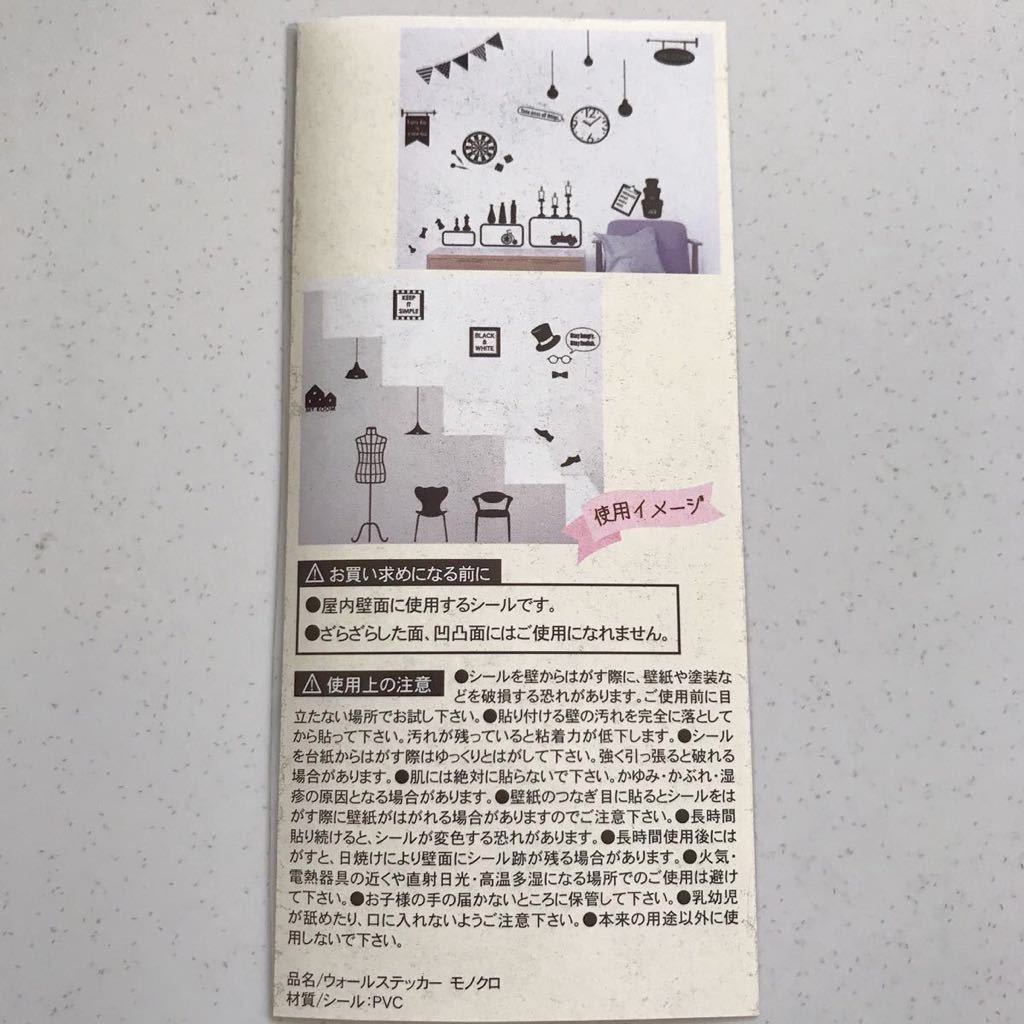 KEEP
IT
SIMPLE
BLACK
&
WHITE
Stay hungry.
Stay foolish.
MY ROOM
使用イメージ
⚠お買い求めになる前に
●屋内壁面に使用するシールです。
●ざらざらした面、凹凸面にはご使用になれません。
⚠使用上の注意 ●シールを壁からはがす際に、壁紙や塗装な
どを破損する恐れがあります。ご使用前に目
立たない場所でお試し下さい。●貼り付ける壁の汚れを完全に落として
から貼って下さい。汚れが残っていると粘着力が低下します。●シール
を台紙からはがす際はゆっくりとはがして下さい。強く引っ張ると破れる
場合があります。●肌には絶対に貼らないで下さい。かゆみ・かぶれ・湿
疹の原因となる場合があります。●壁紙のつなぎ目に貼るとシールをは
がす際に壁紙がはがれる場合がありますのでご注意下さい。●長時間
貼り続けると、シールが変色する恐れがあります。●長時間使用後には
がすと、日焼けにより壁面にシール跡が残る場合があります。●火気・
電熱器具の近くや直射日光・高温多湿になる場所でのご使用は避け
て下さい。●お子様の手の届かないところに保管して下さい。●乳幼児
が舐めたり、口に入れないようご注意下さい。●本来の用途以外に使
用しないで下さい。
品名/ウォールステッカー モノクロ
材質/シール:PVC